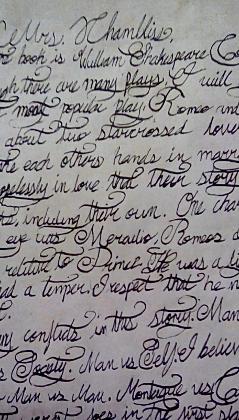 Mrs. Chamblis,
book is William Shakespeare Co
gh there are many plays, I will
most popular play, Romeo and
about two starcrossed lovers
the each others hands in marr
opelessly in love that their story
the, including their own. One char
eye was Mercutio, Romeos
relative to Prince. He was a li
had a temper. I respect that he n
conflicts in this story: Man
Society. Man vs Self. I believ
Man vs Man. Montague vs Ca
does in the first